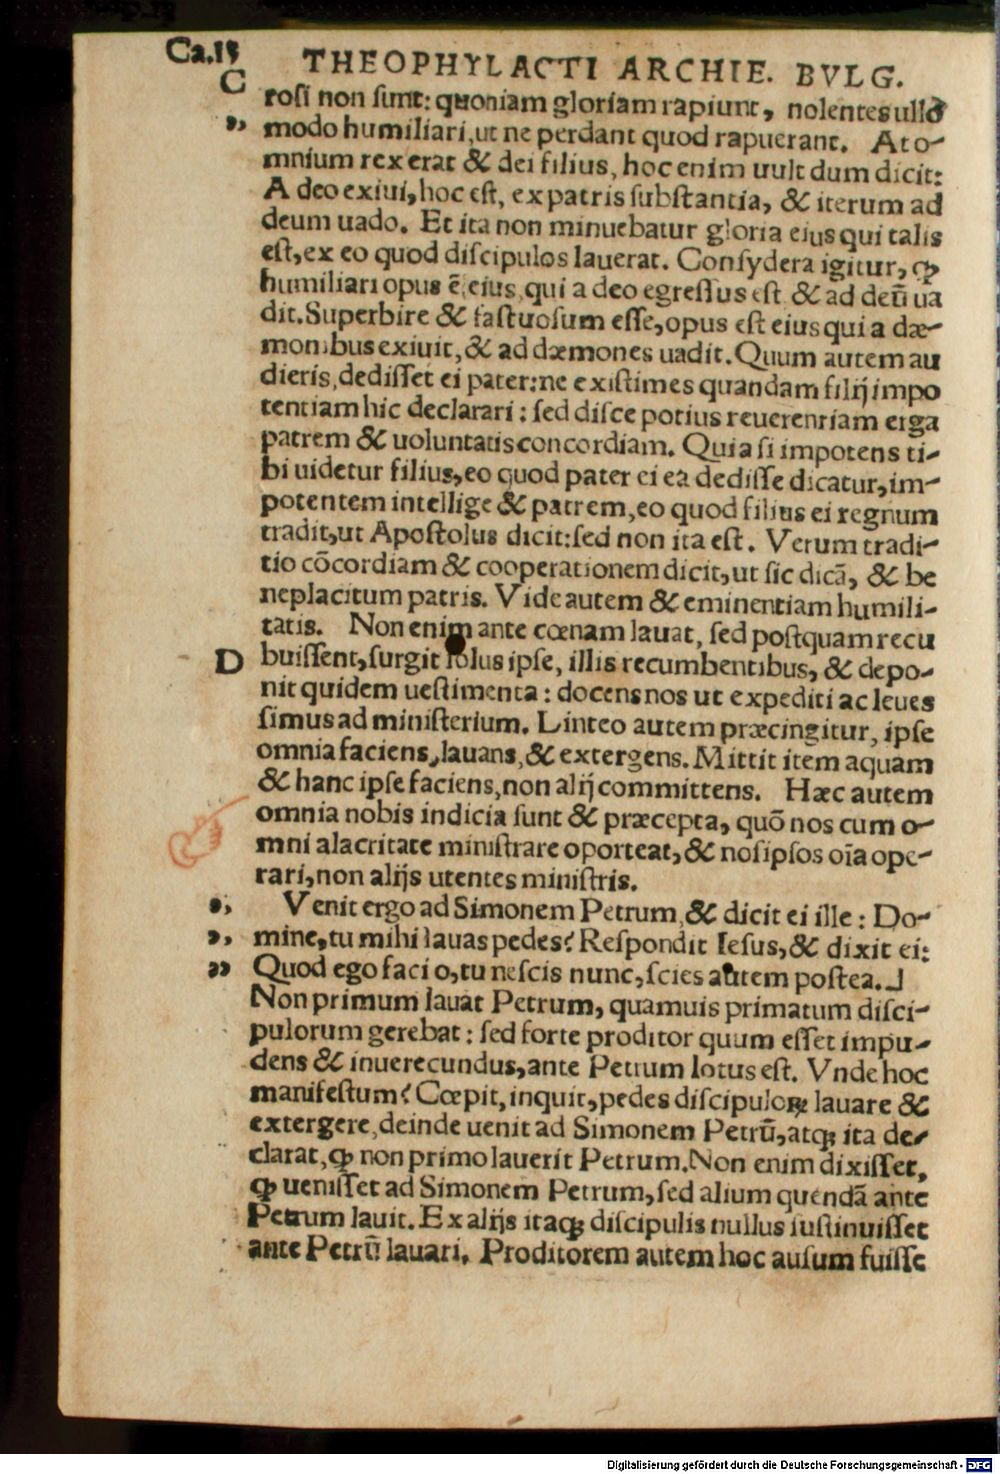 Ca.13
THEOPHYLACTI ARCHIE. BVLG.
C
rosi non sunt: quoniam gloriam rapiunt, nolentes ullo
„ modo humiliari, ut ne perdant quod rapuerant. At o-
mnium rex erat & dei filius, hoc enim uult dum dicit:
A deo exiui, hoc est, ex patris substantia, & iterum ad
deum uado. Et ita non minuebatur gloria eius qui talis
est, ex eo quod discipulos lauerat. Consydera igitur, ꝙ
humiliari opus ē eius, qui a deo egressus est & ad deū ua
dit. Superbire & fastuosum esse, opus est eius qui a dæ-
monibus exiuit, & ad dæmones uadit. Quum autem au
dieris, dedisset ei pater: ne existimes quandam filij impo
tentiam hic declarari: sed disce potius reuerentiam erga
patrem & uoluntatis concordiam. Quia si impotens ti-
bi uidetur filius, eo quod pater ei ea dedisse dicatur, im-
potentem intellige & patrem, eo quod filius ei regnum
tradit, ut Apostolus dicit: sed non ita est. Verum tradi-
tio cōcordiam & cooperationem dicit, ut sic dicā, & be
neplacitum patris. Vide autem & eminentiam humili-
tatis. Non enim ante cœnam lauat, sed postquam recu
D buissent, surgit solus ipse, illis recumbentibus, & depo-
nit quidem uestimenta: docens nos ut expediti ac leues
simus ad ministerium. Linteo autem præcingitur, ipse
omnia faciens, lauans, & extergens. Mittit item aquam
& hanc ipse faciens, non alij committens. Hæc autem
omnia nobis indicia sunt & præcepta, quō nos cum o-
mni alacritate ministrare oporteat, & nosipsos oīa ope-
rari, non alijs utentes ministris.
„ Venit ergo ad Simonem Petrum, & dicit ei ille: Do-
„ mine, tu mihi lauas pedes? Respondit Iesus, & dixit ei:
„ Quod ego facio, tu nescis nunc, scies autem postea.⅃
Non primum lauat Petrum, quamuis primatum disci-
pulorum gerebat: sed forte proditor quum esset impu-
dens & inuerecundus, ante Petrum lotus est. Vnde hoc
manifestum? Cœpit, inquit, pedes discipuloꝝ lauare &
extergere, deinde uenit ad Simonem Petrū, atqꝫ ita de-
clarat, ꝙ non primo lauerit Petrum. Non enim dixisset,
ꝙ uenisset ad Simonem Petrum, sed alium quendā ante
Petrum lauit. Ex alijs itaqꝫ discipulis nullus sustinuisset
ante Petrū lauari. Proditorem autem hoc ausum fuisse
Digitalisierung gefördert durch die Deutsche Forschungsgemeinschaft - DFG